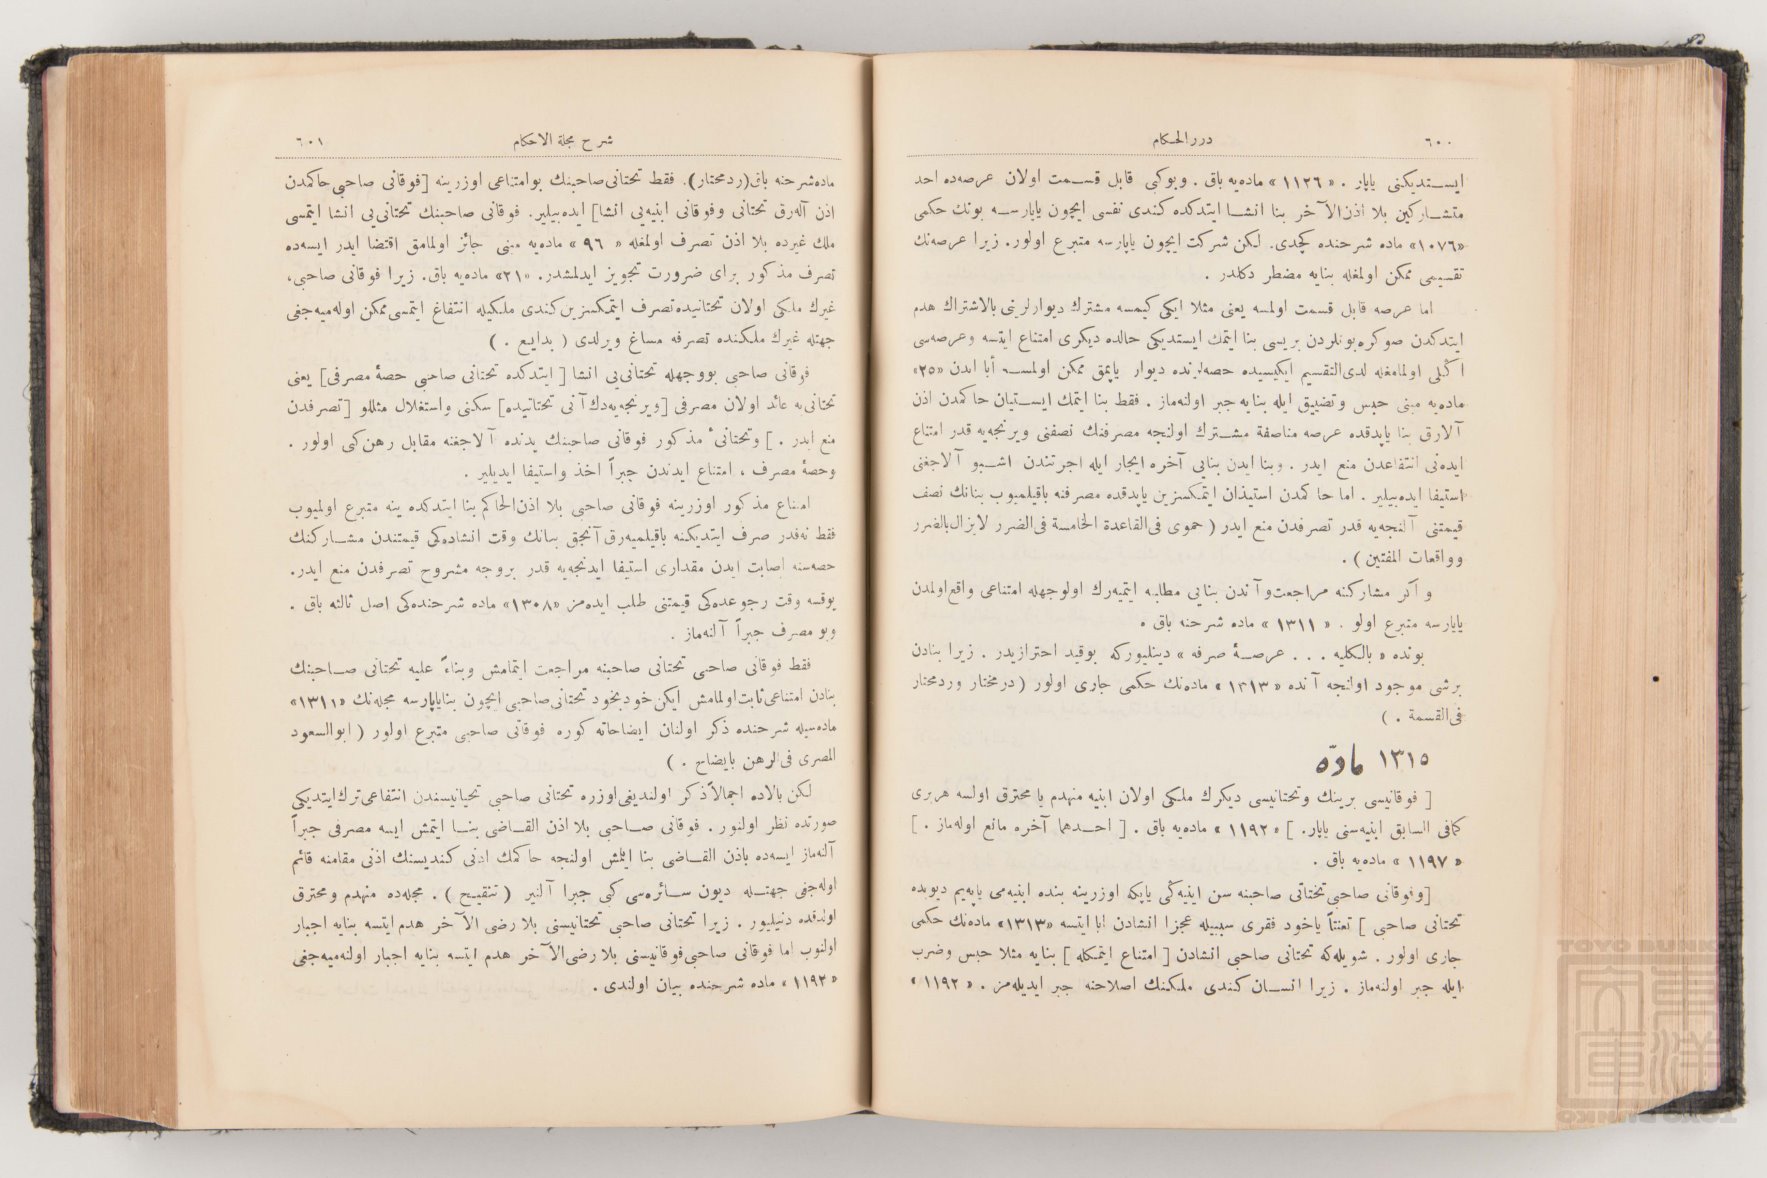 ٦٠٠
درر الحكام
ايستديكنى ياپار . « ١١٢٦ » ماده‌يه باق . وبوكبى قابل قسمت اولان عرصه‌ده احد
متشاركين بلا اذن‌الآخر بنا انشا ايتدكده كندى نفسى ايچون ياپارسه بونك حكمى
«١٠٧٦» ماده شرحنده كچدى. لكن شركت ايچون ياپارسه متبرع اولور. زيرا عرصه‌نك
تقسيمى ممكن اولمغله بنايه مضطر دكلدر .
اما عرصه قابل قسمت اولمسه يعنى مثلا ايكى كيمسه مشترك ديوارلرينى بالاشتراك هدم
ايتدكدن صوكره بونلردن بريسى بنا ايتمك ايستديكى حالده ديكرى امتناع ايتسه وعرصه‌سى
اكلى اولمامغله لدى‌التقسيم ايكيسيده حصه‌لرنده ديوار ياپمق ممكن اولمسه أبا ايدن «٢٥»
ماده‌يه مبنى حبس وتضييق ايله بنايه جبر اولنه‌ماز . فقط بنا ايتمك ايستيان حاكمدن اذن
آلارق بنا ياپدقده عرصه مناصفة مشترك اولنجه مصرفنك نصفنى ويرنجه‌يه قدر امتناع
ايده‌نى انتفاعدن منع ايدر . وبنا ايدن بنايى آخره ايجار ايله اجرتندن اشبو آلاجغنى
استيفا ايده‌بيلير . اما حاكمدن استيذان ايتمكسزين ياپدقده مصرفنه باقيلميوب بنانك نصف
قيمتنى آلنجه‌يه قدر تصرفدن منع ايدر ( حموى فى‌القاعدة الخامسة فى‌الضرر لايزال‌بالضرر
وواقعات المفتين ) .
و اكر مشاركنه مراجعت‌وآندن بنايى مطالبه ايتميه‌رك اولوجهله امتناعى واقع‌اولمدن
ياپارسه متبرع اولو . « ١٣١١ » ماده شرحنه باق .
بونده « بالكليه . . . عرصهٔ صرفه » دينليوركه بوقيد احترازيدر . زيرا بنادن
برشى موجود اولنجه آنده « ١٣١٣ » ماده‌نك حكمى جارى اولور ( درمختار وردمحتار
فى‌القسمة . )
١٣١٥ مادّه
[ فوقانيسى برينك وتحتانيسى ديكرك ملكى اولان ابنيه منهدم يا محترق اولسه هربرى
كما‌فى السابق ابنيه‌سنى ياپار. ] « ١١٩٢ » ماده‌يه باق . [ احدهما آخره مانع اوله‌ماز . ]
« ١١٩٧ » ماده‌يه باق .
[وفوقانى صاحبى‌تحتانى صاحبنه سن ابنيه‌كى ياپكه اوزرينه بنده ابنيه‌مى ياپه‌يم ديوبده
تحتانى صاحبى ] تعنتاً ياخود فقرى سببيله عجزا انشادن ابا ايتسه «١٣١٣» ماده‌نك حكمى
جارى اولور . شويله‌كه تحتانى صاحبى انشادن [ امتناع ايتمكله ] بنايه مثلا حبس وضرب
ايله جبر اولنه‌ماز . زيرا انسان كندى ملكنك اصلاحنه جبر ايديله‌مز . « ١١٩٢ »
شرح مجلة الاحكام
٦٠١
ماده‌شرحنه باق(ردمحتار). فقط تحتانى‌صاحبنك بوامتناعى اوزرينه [فوقانى صاحبى‌حاكمدن
اذن آله‌رق تحتانى وفوقانى ابنيه‌يى انشا] ايده‌بيلير. فوقانى صاحبنك تحتانى‌يى انشا ايتمسى
ملك غيرده بلا اذن تصرف اولمغله « ٩٦ » ماده‌يه مبنى جائز اولمامق اقتضا ايدر ايسه‌ده
تصرف مذكور براى ضرورت تجويز ايدلمشدر. «٢١» ماده‌يه باق. زيرا فوقانى صاحبى،
غيرك ملكى اولان تحتانيده‌تصرف ايتمكسزين‌كندى ملكيله انتفاع ايتمسى‌ممكن اوله‌ميه‌جغى
جهتله غيرك ملكنده تصرفه مساغ ويرلدى ( بدايع . )
فوقانى صاحبى بووجهله تحتانى‌يى انشا [ ايتدكده تحتانى صاحبى حصهٔ مصرفى] يعنى
تحتانى‌يه عائد اولان مصرفى [ويرنجه‌يه‌دك آنى تحتانيده] سكنى واستغلال مثللو [تصرفدن
منع ايدر . ] وتحتانىٔ مذكور فوقانى صاحبنك يدنده آلاجغنه مقابل رهن‌كبى اولور .
وحصهٔ مصرف ، امتناع ايدندن جبراً اخذ واستيفا ايديلير .
امتناع مذكور اوزرينه فوقانى صاحبى بلا اذن‌الحاكم بنا ايتدكده ينه متبرع اولميوب
فقط نه‌قدر صرف ايتديكنه باقيلميه‌رق آنجق بنانك وقت انشاده‌كى قيمتندن مشاركنك
حصه‌سنه اصابت ايدن مقدارى استيفا ايدنجه‌يه قدر بروجه مشروح تصرفدن منع ايدر.
يوقسه وقت رجوعده‌كى قيمتنى طلب ايده‌مز «١٣٠٨» ماده شرحنده‌كى اصل ثالثه باق .
وبو مصرف جبراً آلنه‌ماز .
فقط فوقانى صاحبى تحتانى صاحبنه مراجعت ايتمامش وبناءً عليه تحتانى صاحبنك
بنادن امتناعى‌ثابت‌اولمامش ايكن‌خودبخود تحتانى‌صاحبى ايچون بنا‌ياپارسه مجله‌نك «١٣١١»
ماده‌سيله شرحنده ذكر اولنان ايضاحاته كوره فوقانى صاحبى متبرع اولور ( ابوالسعود
المصرى فى‌الرهن بايضاح . )
لكن بالاده اجمالاًذكر اولنديغى‌اوزره تحتانى صاحبى تحتانيسندن انتفاعى‌ترك‌ايتديكى
صورتده نظر اولنور . فوقانى صاحبى بلا اذن القاضى بنا ايتمش ايسه مصرفى جبراً
آلنه‌ماز ايسه‌ده باذن القاضى بنا ايتمش اولنجه حاكمك اذنى كنديسنك اذنى مقامنه قائم
اوله‌جغى جهتله ديون سائره‌سى كبى جبرا آلنير ( تنقيح ) . مجله‌ده منهدم ومحترق
اولدقده دينيليور . زيرا تحتانى صاحبى تحتانيسنى بلا رضى الآخر هدم ايتسه بنايه اجبار
اولنوب اما فوقانى صاحبى‌فوقانيسنى بلا رضى‌الآخر هدم ايتسه بنايه اجبار اولنه‌ميه‌جغى
« ١١٩٢ » ماده شرحنده بيان اولندى .
TOYO BUNKO
東洋文庫
TOYO BUNKO